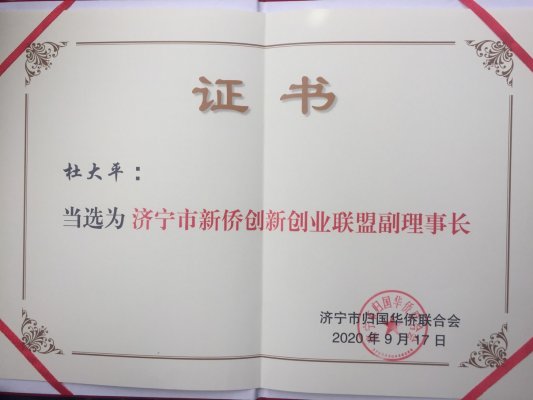 证书
杜大平：
当选为 济宁市新侨创新创业联盟副理事长
济宁市归国华侨联合会
2020年9月17日